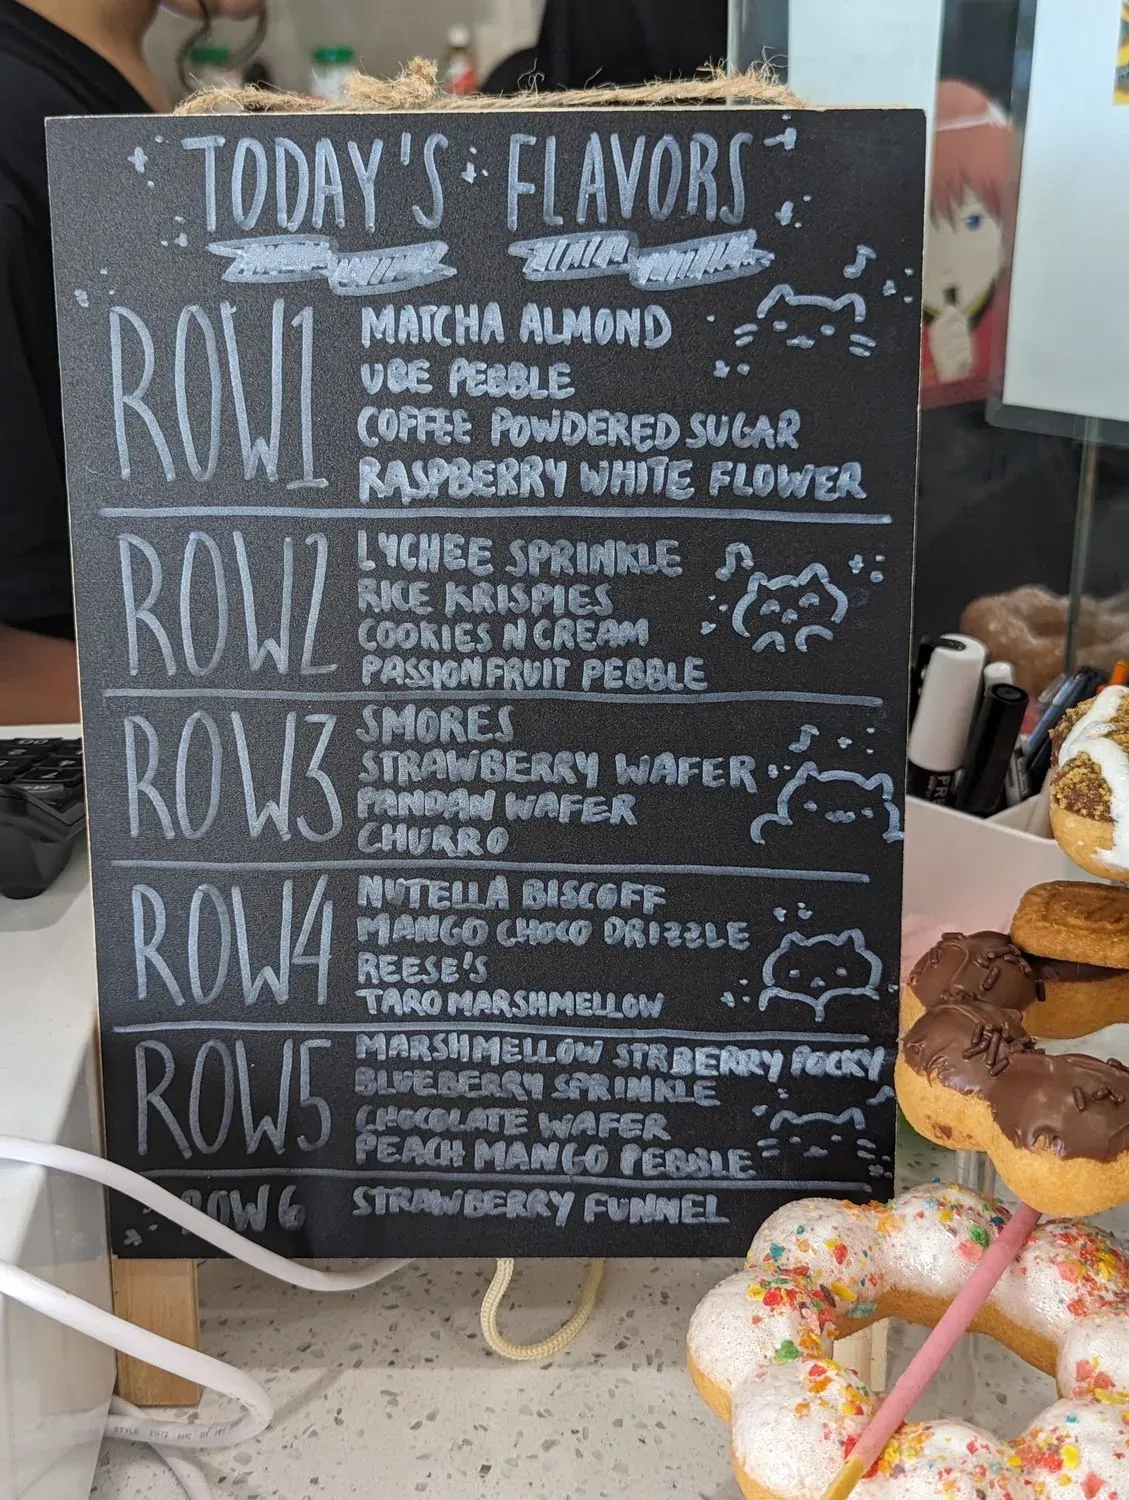 TODAY'S FLAVORS
ROW1
MATCHA ALMOND
UBE PEBBLE
COFFEE POWDERED SUGAR
RASPBERRY WHITE FLOWER
ROW2
LYCHEE SPRINKLE
RICE KRISPIES
COOKIES N CREAM
PASSIONFRUIT PEBBLE
ROW3
SMORES
STRAWBERRY WAFER
PANDAN WAFER
CHURRO
ROW4
NUTELLA BISCOFF
MANGO CHOCO DRIZZLE
REESE'S
TARO MARSHMELLOW
ROW5
MARSHMELLOW STRBERRY POCKY
BLUEBERRY SPRINKLE
CHOCOLATE WAFER
PEACH MANGO PEBBLE
ROW6
STRAWBERRY FUNNEL